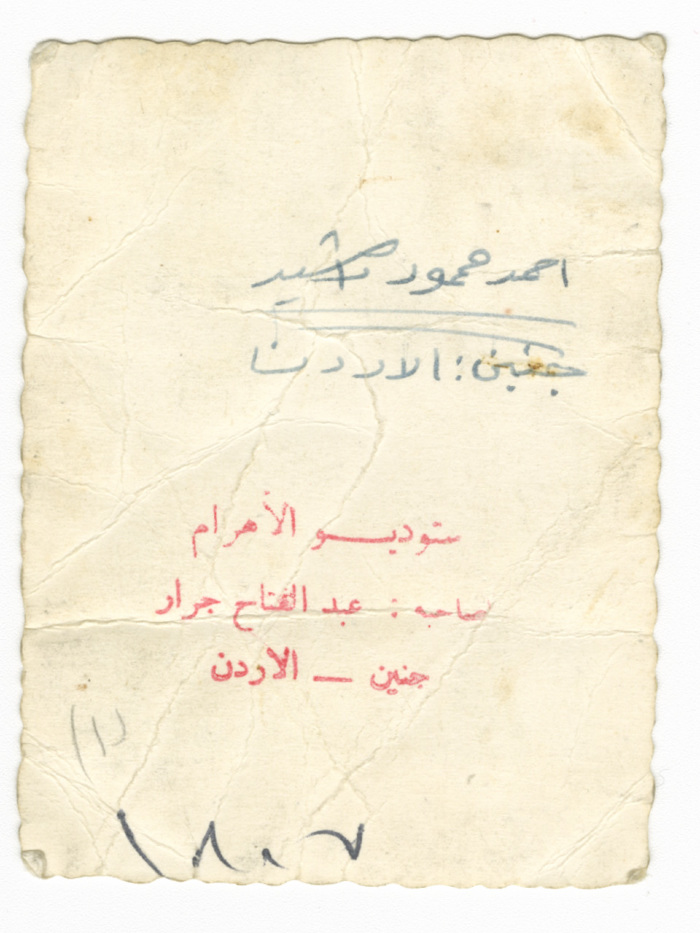 احمد محمود
جنين : الاردن
ستوديو الأهرام
صاحبه : عبد الفتاح جرار
جنين — الاردن
(١)